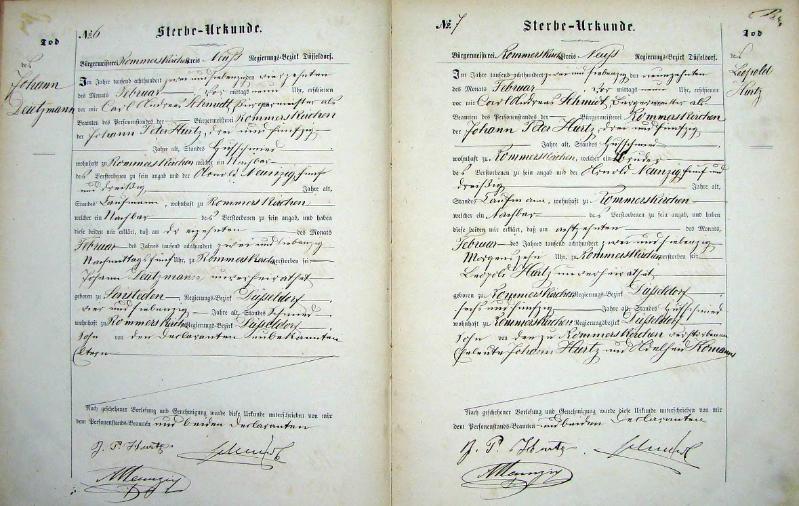 Tod
des
Johann
Deutzmann
№ 6
Sterbe-Urkunde.
Bürgermeisterei Rommerskirchen Kreis Neuß Regierungs-Bezirk Düsseldorf.
Im Jahre tausend achthundert zwei und siebenzig den vierzehnten
des Monats Februar Vor mittags neun Uhr, erschienen
vor mir Carl Andreas Schmidt, Bürgermeister als
Beamten des Personenstandes der Bürgermeisterei Rommerskirchen
der Johann Peter Hurtz, drei und fünfzig
Jahre alt, Standes Hufschmied
wohnhaft zu Rommerskirchen welcher ein Nachbar
des Verstorbenen zu sein angab und der Arnold Nauzig, fünf
und dreißig Jahre alt,
Standes Kaufmann, wohnhaft zu Rommerskirchen
welcher ein Nachbar des Verstorbenen zu sein angab, und haben
diese beiden mir erklärt, daß am dreizehnten des Monats
Februar des Jahres tausend achthundert zwei und siebenzig
Nachmittags fünf Uhr, zu Rommerskirchen verstorben sei
Johann Deutzmann unverheirathet
geboren zu Regierungs-Bezirk Düsseldorf
vier und siebenzig Jahre alt, Standes Schmied
wohnhaft Rommerskirchen Regierungsbezirk Düsseldorf
Sohn von den Declaranten unbekannten
Eltern
Nach geschehener Vorlesung und Genehmigung wurde diese Urkunde unterschrieben von mir
dem Personenstands-Beamten und beiden Declaranten
J. P. Hurtz Schmidt
ANauzig
№ 7
Sterbe-Urkunde.
Tod
des
Leopold
Hurtz
Bürgermeisterei Rommerskirchen Kreis Neuß Regierungs-Bezirk Düsseldorf.
Im Jahre tausend achthundert zwei und siebenzig den neunzehnten
des Monats Februar Vor mittags neun Uhr, erschienen
vor mir Carl Andreas Schmidt, Bürgermeister als
Beamten des Personenstandes der Bürgermeisterei Rommerskirchen
der Johann Peter Hurtz, drei und fünfzig
Jahre alt, Standes Hufschmied
wohnhaft zu Rommerskirchen, welcher ein Bruder
des Verstorbenen zu sein angab und der Arnold Nauzig, fünf und
dreißig Jahre alt,
Standes Kaufmann, wohnhaft zu Rommerskirchen
welcher ein Nachbar des Verstorbenen zu sein angab, und haben
diese beiden mir erklärt, daß am achtzehnten des Monats
Februar des Jahres tausend achthundert zwei und siebenzig
Morgens zehn Uhr, zu Rommerskirchen verstorben sei
Leopold Hurtz unverheirathet
geboren zu Rommerskirchen Regierungs-Bezirk Düsseldorf
sechs und fünfzig Jahre alt, Standes Hufschmied
wohnhaft zu Rommerskirchen Regierungsbezirk Düsseldorf
Sohn von den zu Rommerskirchen verstorbenen
Eheleute Johann Hurtz und
Nach geschehener Vorlesung und Genehmigung wurde diese Urkunde unterschrieben von mir
dem Personenstands-Beamten und beiden Declaranten
J. P. Hurtz Schmidt
ANauzig